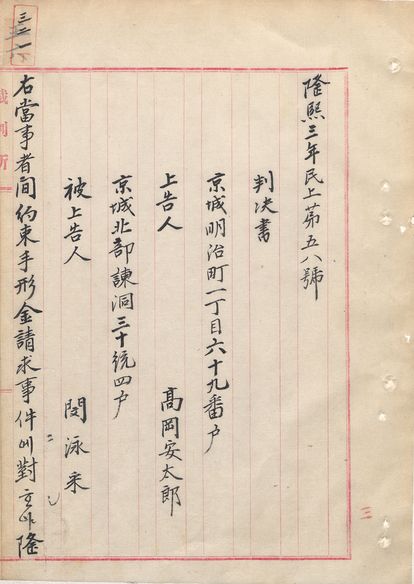 隆熙三年民上第五八號
判决書
京城明治町一丁目六十九番戶
上告人 髙岡安太郎
京城北部諫洞三十統四戶
被上告人 閔泳采
右當事者間約束手形金請求事件에對ᄒᆞ야隆
裁判所
三